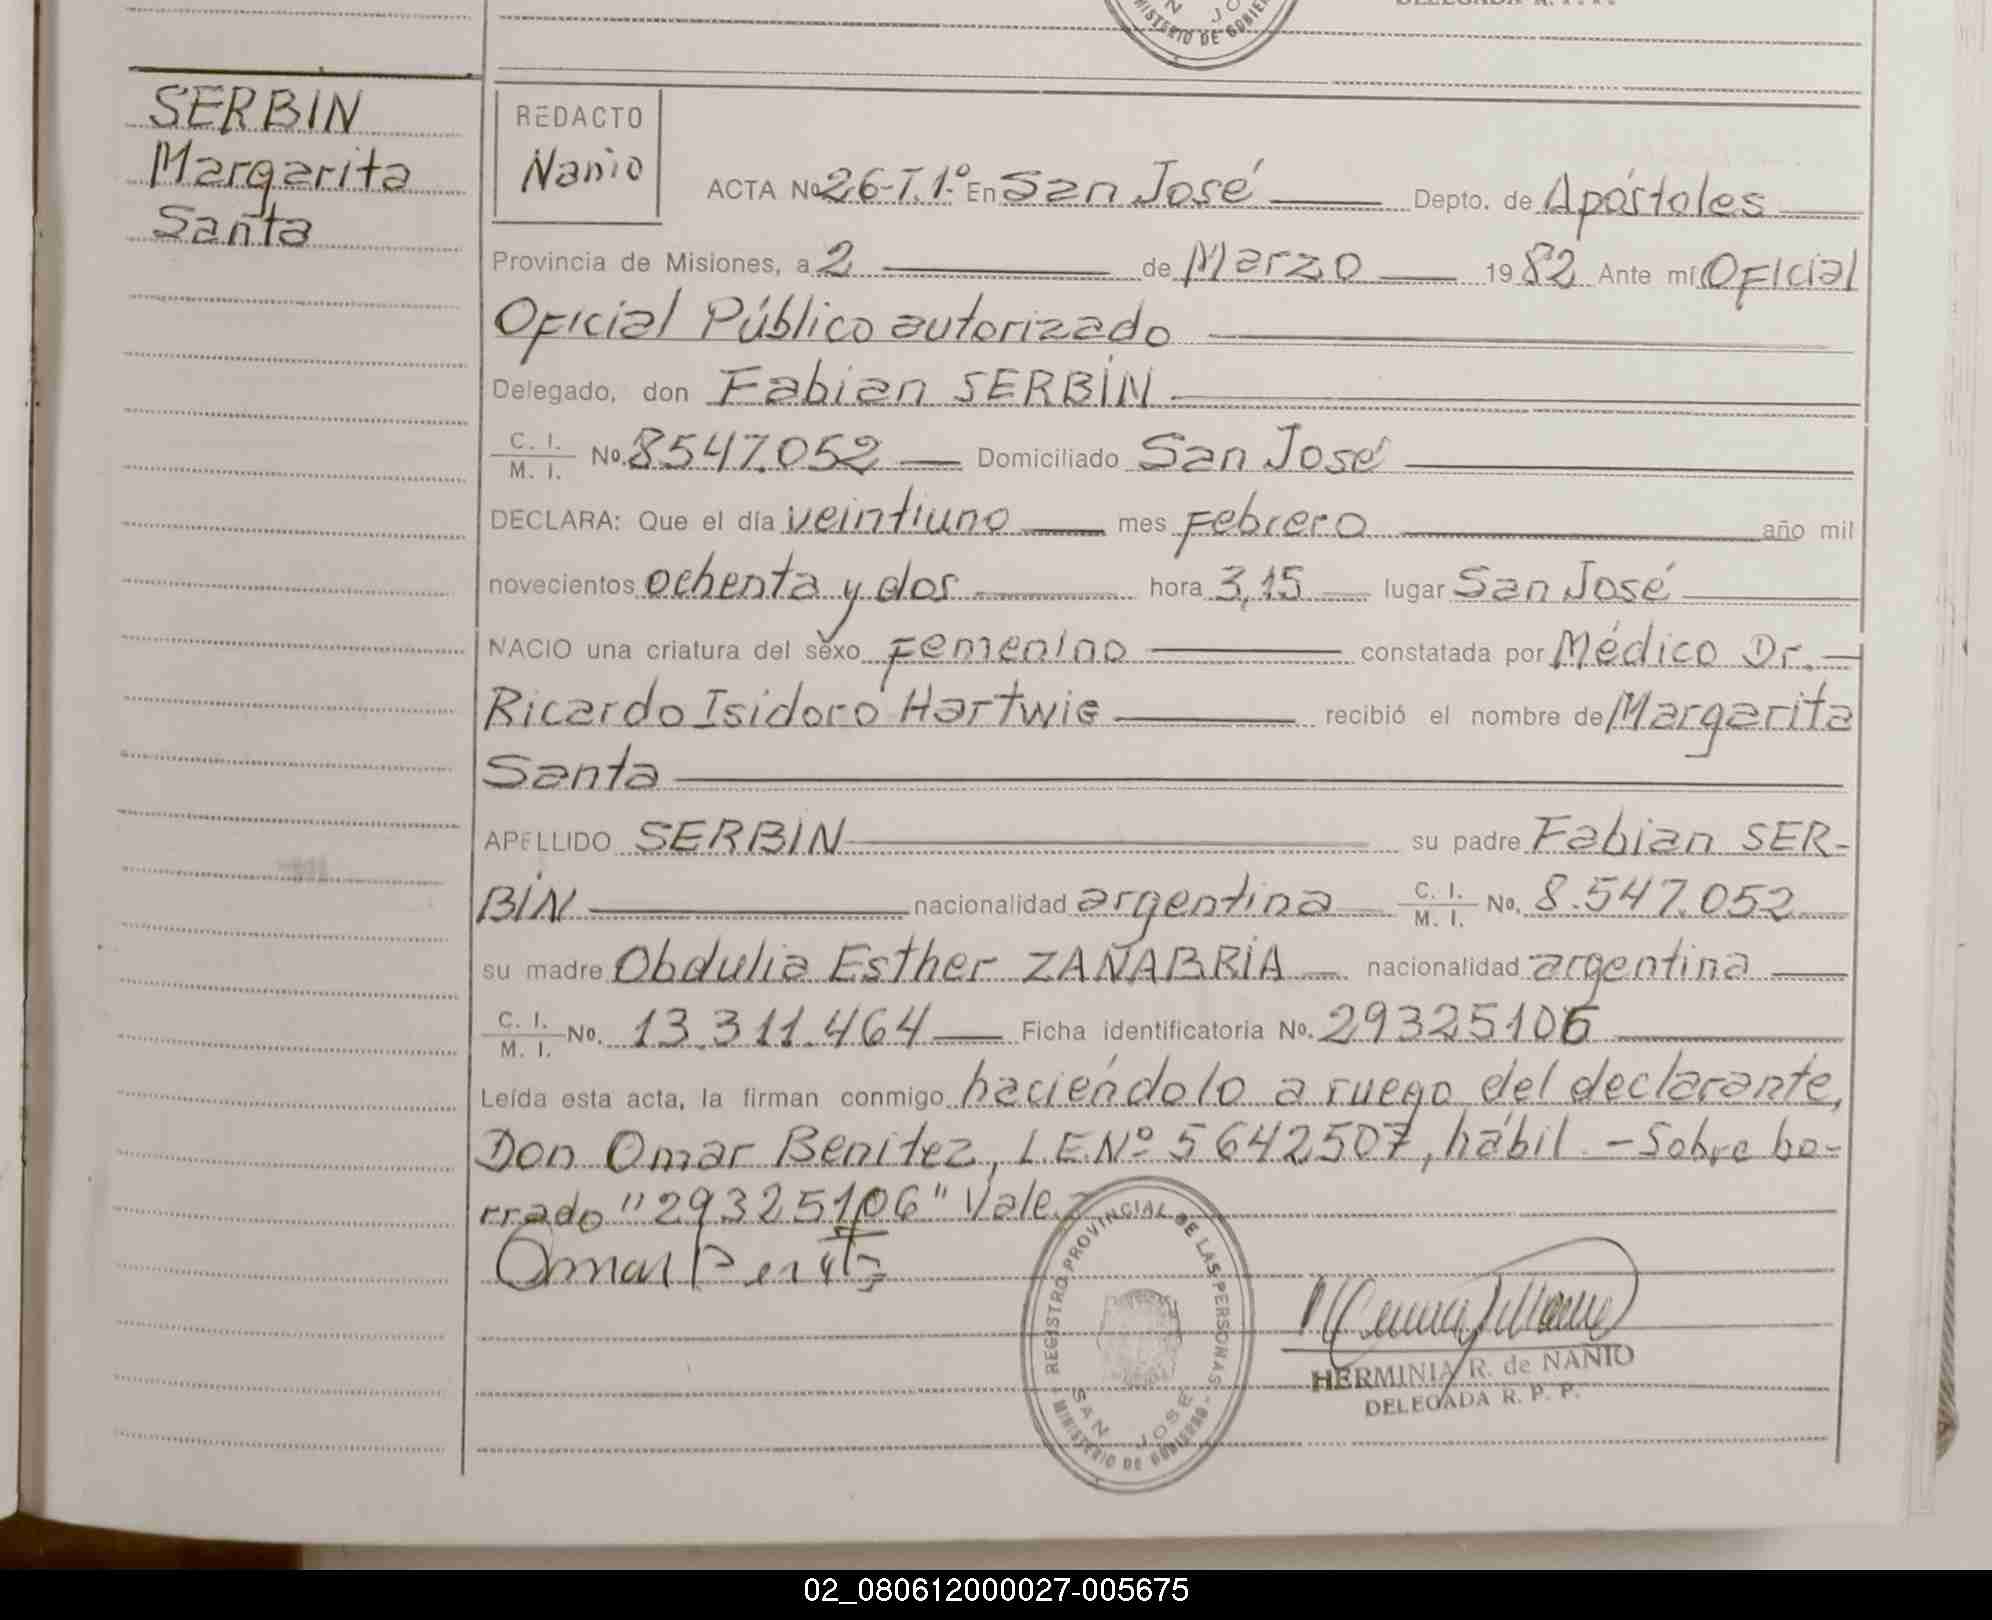 SERBIN
Margarita
Santa
REDACTO
Nanio
ACTA Nº 26-T.1.º En San José Depto. de Apóstoles
Provincia de Misiones, a 2 de Marzo 1982 Ante mí Oficial
Oficial Público autorizado
Delegado, don Fabian SERBIN
C. I.
M. I. Nº. 8547.052 Domiciliado San José
DECLARA: Que el día veintiuno mes Febrero año mil
novecientos ochenta y dos hora 3,15 lugar San José
NACIO una criatura del sexo Femenino constatada por Médico Dr.
Ricardo Isidoro Hartwig recibió el nombre de Margarita
Santa
APELLIDO SERBIN su padre Fabian SER-
BIN nacionalidad argentina C. I.
M. I. Nº. 8.547.052
su madre Obdulia Esther ZAÑABRIA nacionalidad argentina
C. I.
M. I. Nº. 13.311.464 Ficha identificatoria Nº. 29325106
Leída esta acta, la firman conmigo haciéndolo a ruego del declarante,
Don Omar Benitez, L.E.Nº 5642507, hábil. - Sobre bo-
rrado "29325106" Vale.
REGISTRO PROVINCIAL DE LAS PERSONAS
SAN JOSE
MINISTERIO DE GOBIERNO
HERMINIA R. de NANIO
DELEGADA R. P. P.
02_080612000027-005675